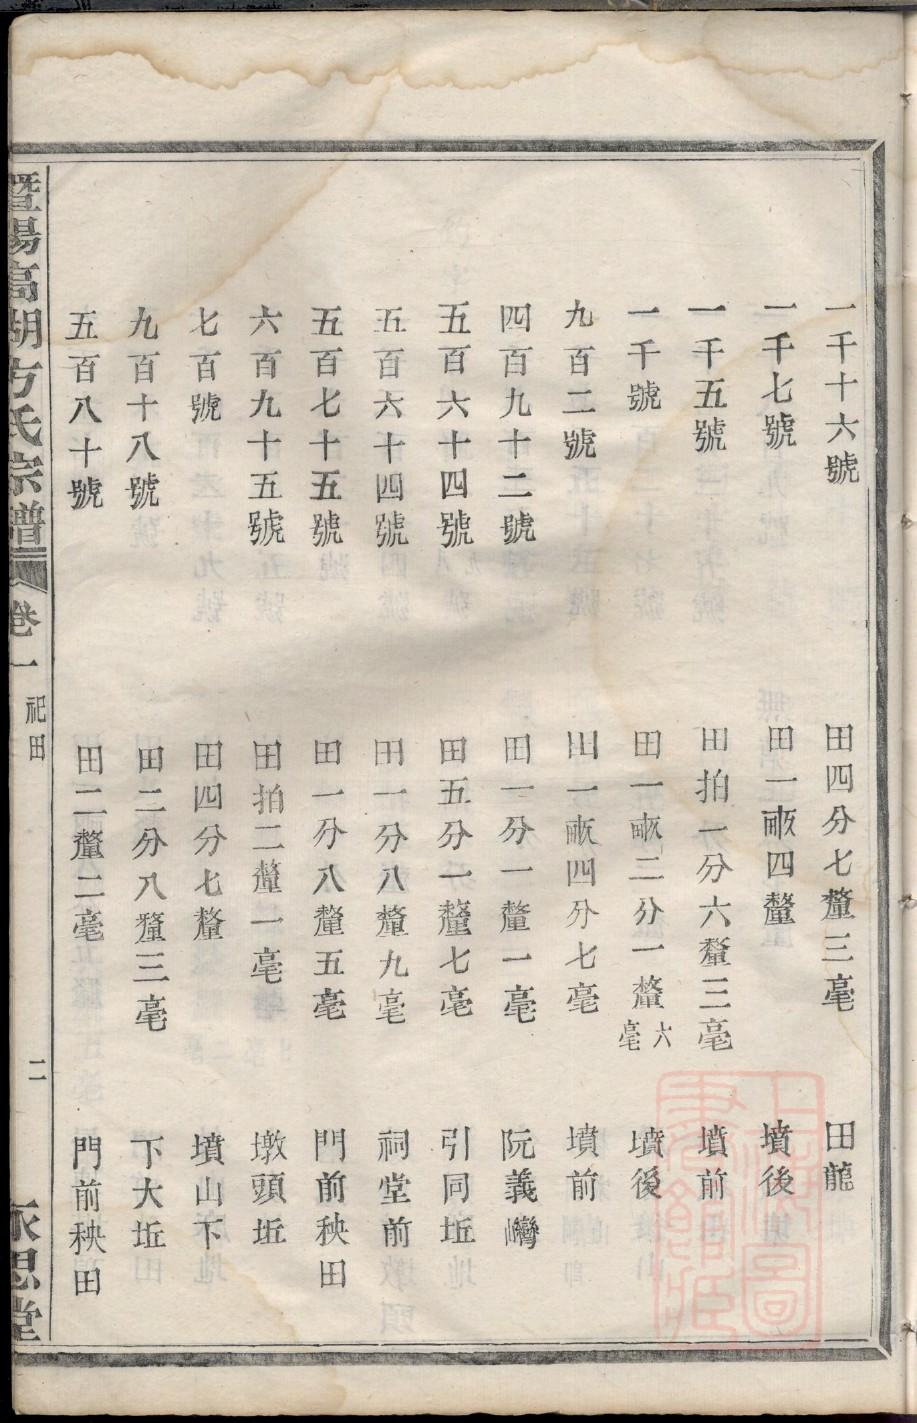 一千十六號 田四分七釐三毫 田龍
一千七號 田一畝四釐 墳後
一千五號 田拍一分六釐三毫 墳前
一千號 田一畝二分一釐六毫 墳後
九百二號 田一畝四分七毫 墳前
四百九十二號 田一分一釐一毫 阮義灣
五百六十四號 田五分一釐七毫 引同坵
五百六十四號 田一分八釐九毫 祠堂前
五百七十五號 田一分八釐五毫 門前秧田
六百九十五號 田拍二釐一毫 墩頭坵
七百號 田四分七釐 墳山下
九百十八號 田二分八釐三毫 下大坵
五百八十號 田二釐二毫 門前秧田
暨陽高湖方氏宗譜 卷一 祀田 二 永思堂